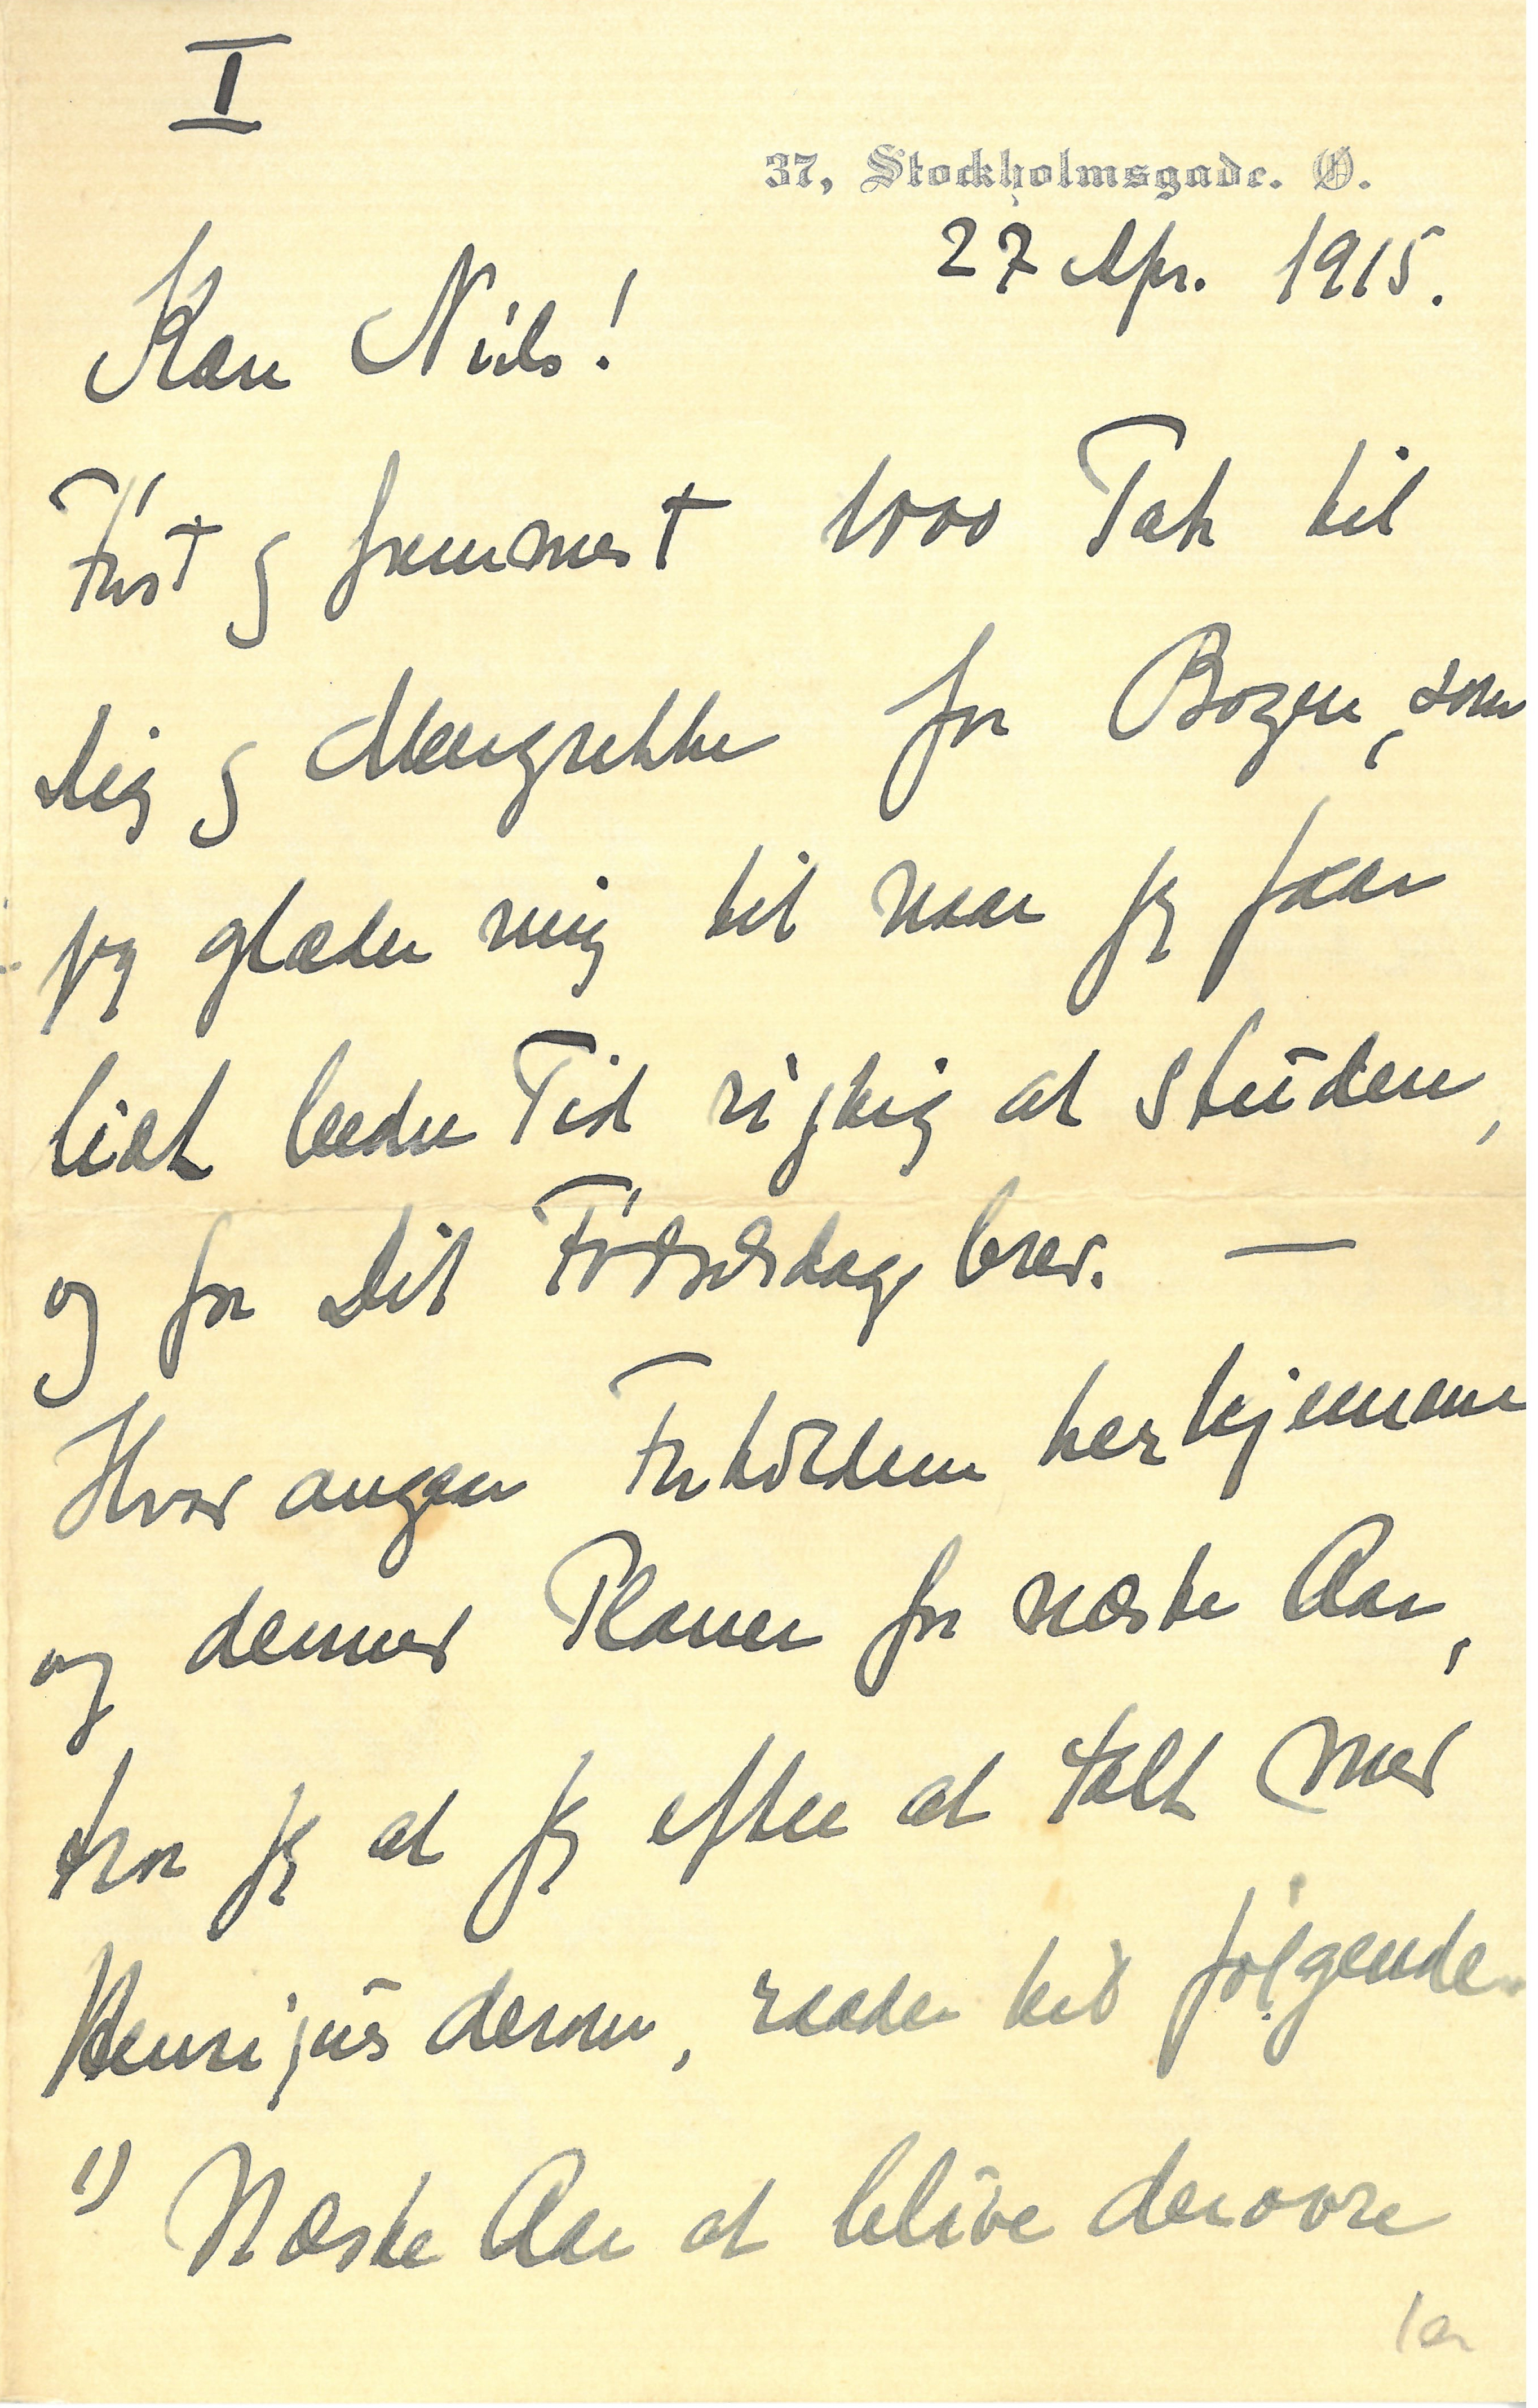 I
37, Stockholmsgade. Ø.
27 Apr. 1915.
Kære Niels!
Først og fremmest 1000 Tak til
Dig og Margrethe for Bogen, som
jeg glæder mig til naar jeg faar
lidt bedre Tid rigtig at studere,
og for Dit Fødselsdagsbrev. —
Hvad angaar Forholdene herhjemme
og dennes Planer for næste Aar,
tror jeg at jeg efter at talt med
Henriques derom, raader til følgende.
1) Næste Aar at blive derovre
1a